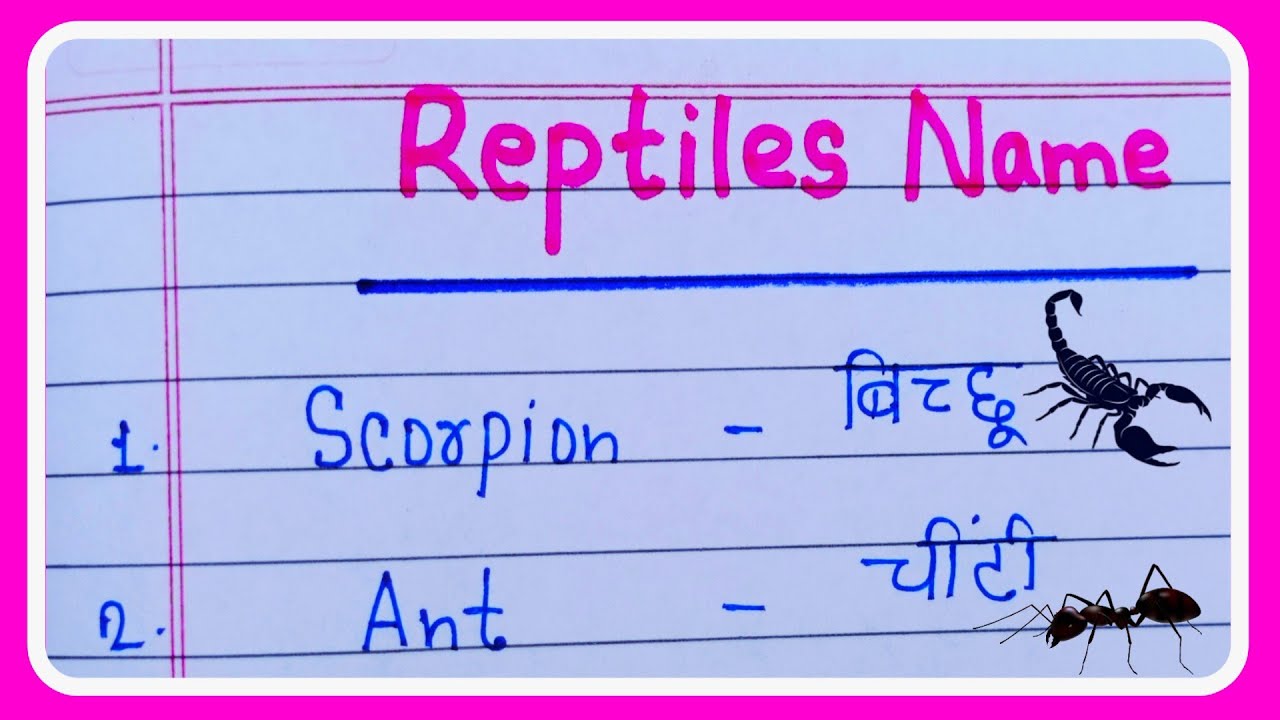 Reptiles Name
1. Scorpion - बिच्छू
2. Ant - चींटी